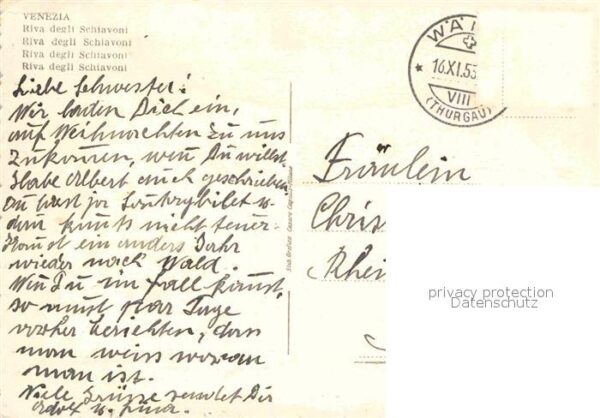 VENEZIA
Riva degli Schiavoni
Riva degli Schiavoni
Riva degli Schiavoni
Riva degli Schiavoni
Liebe Schwester!
Wir laden Dich ein,
auf Weihnachten zu uns
zukomen, wen Du willst
Habe Albert auch geschrieben
Du hast ja u-
dan kunts nicht teuer-
Komst ein anders Jahr
wieder nach Wald.
Wen Du im fall komst,
so must paar Tage
vorher berichten, das
man weiss woran
man ist.
Viele Grüsse sendet Dir
Adolf u. Lina.
WÄ
16.XI.53
VIII
(THURGAU)
Fräulein
Chris
Rhei
privacy protection
Datenschutz